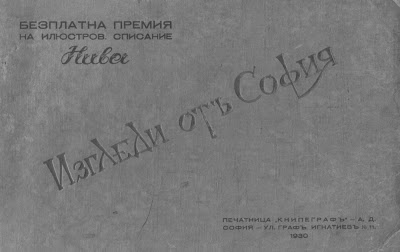 БЕЗПЛАТНА ПРЕМИЯ
НА ИЛЮСТРОВ. СПИСАНИЕ
Нива
Изгледи отъ София
ПЕЧАТНИЦА „КНИПЕГРАФЪ" – А. Д.
СОФИЯ – УЛ. ГРАФЪ ИГНАТИЕВЪ
1930